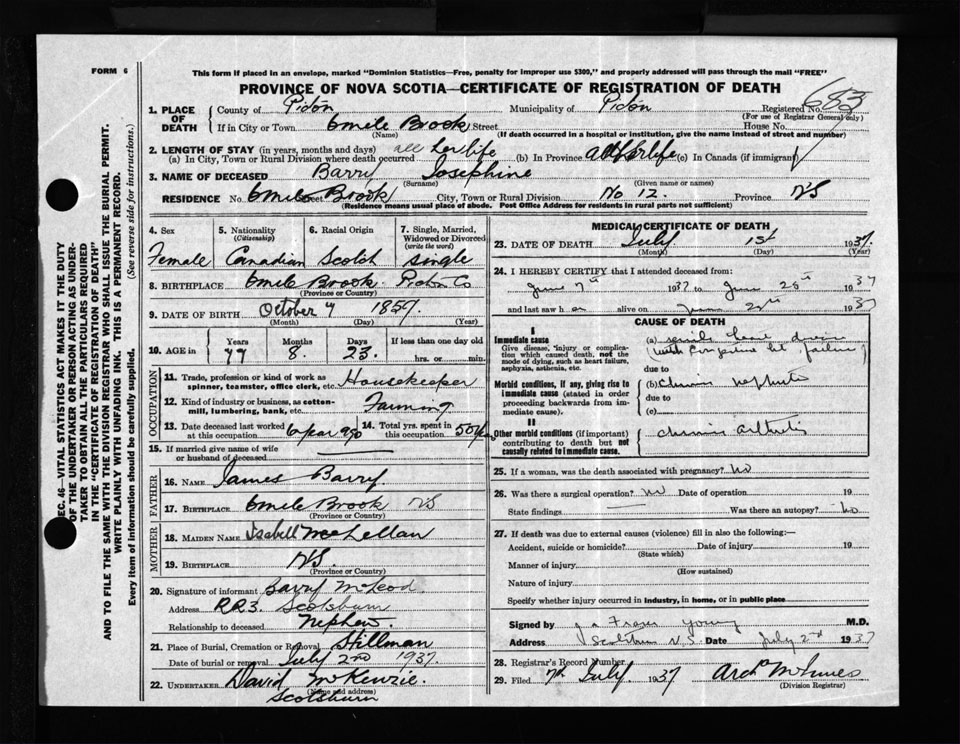 FORM 6
This form if placed in an envelope, marked "Dominion Statistics—Free, penalty for improper use $300," and properly addressed will pass through the mail "FREE"
PROVINCE OF NOVA SCOTIA—CERTIFICATE OF REGISTRATION OF DEATH
1. PLACE OF DEATH County of Pictou Municipality of Pictou Registered No. 683
(For use of Registrar General only)
If in City or Town 6 mile Brook Street House No.
(Name) (If death occurred in a hospital or institution, give the name instead of street and number)
2. LENGTH OF STAY (in years, months and days)
(a) In City, Town or Rural Division where death occurred all her life (b) In Province all her life (c) In Canada (if immigrant)
3. NAME OF DECEASED Barry Josephine
(Surname) (Given name or names)
RESIDENCE No. 6 mile Street Brook City, Town or Rural Division No 12. Province NS
(Residence means usual place of abode. Post Office Address for residents in rural parts not sufficient)
4. Sex Female
5. Nationality (Citizenship) Canadian
6. Racial Origin Scotch
7. Single, Married, Widowed or Divorced (Write the word) Single
8. BIRTHPLACE 6 mile Brook Pictou Co
(Province or Country)
9. DATE OF BIRTH October 7 1857
(Month) (Day) (Year)
10. AGE in Years 79 Months 8. Days 23. If less than one day old hrs. or min.
OCCUPATION
11. Trade, profession or kind of work as spinner, teamster, office clerk, etc. Housekeeper
12. Kind of industry or business, as cotton-mill, lumbering, bank, etc. Farming
13. Date deceased last worked at this occupation 6 year ago 14. Total yrs. spent in this occupation 50 years
15. If married give name of wife or husband of deceased
FATHER
16. NAME James Barry
17. BIRTHPLACE 6 mile Brook NS
(Province or Country)
MOTHER
18. MAIDEN NAME Isabell McLellan
19. BIRTHPLACE NS.
(Province or Country)
20. Signature of informant Barry McLeod
Address RR3. Scotsburn
Relationship to deceased Nephew.
21. Place of Burial, Cremation or Removal Stillman
Date of burial or removal July 2nd 1937.
22. UNDERTAKER David McKenzie.
(Name and address)
Scotsburn
MEDICAL CERTIFICATE OF DEATH
23. DATE OF DEATH July 1st 1937.
(Month) (Day) (Year)
24. I HEREBY CERTIFY that I attended deceased from:
June 7th 1937 to June 28th 1937
and last saw h er alive on June 28th 1937
CAUSE OF DEATH
I
Immediate cause
Give disease, injury or complication which caused death, not the mode of dying, such as heart failure, asphyxia, asthenia, etc.
(a) senile heart
(with failure)
due to
Morbid conditions, if any, giving rise to immediate cause (stated in order proceeding backwards from immediate cause).
(b) Chronic nephritis
due to
(c)
II
Other morbid conditions (if important) contributing to death but not causally related to immediate cause.
chronic arthritis
25. If a woman, was the death associated with pregnancy? No
26. Was there a surgical operation? No Date of operation 19
State findings Was there an autopsy? No
27. If death was due to external causes (violence) fill in also the following:—
Accident, suicide or homicide? Date of injury 19
(State which)
Manner of injury
(How sustained)
Nature of injury
Specify whether injury occurred in industry, in home, or in public place
Signed by J. A. Fraser Young M.D.
Address Scotsburn N.S. Date July 2nd 1937
28. Registrar's Record Number
29. Filed 7th July 1937 Arch McInnes
(Division Registrar)
SEC. 46—VITAL STATISTICS ACT MAKES IT THE DUTY
OF THE UNDERTAKER OR PERSON ACTING AS UNDER-
TAKER TO OBTAIN ALL THE PARTICULARS REQUIRED
IN THE "CERTIFICATE OF REGISTRATION OF DEATH"
AND TO FILE THE SAME WITH THE DIVISION REGISTRAR WHO SHALL ISSUE THE BURIAL PERMIT.
WRITE PLAINLY WITH UNFADING INK. THIS IS A PERMANENT RECORD.
Every item of information should be carefully supplied. (See reverse side for instructions.)